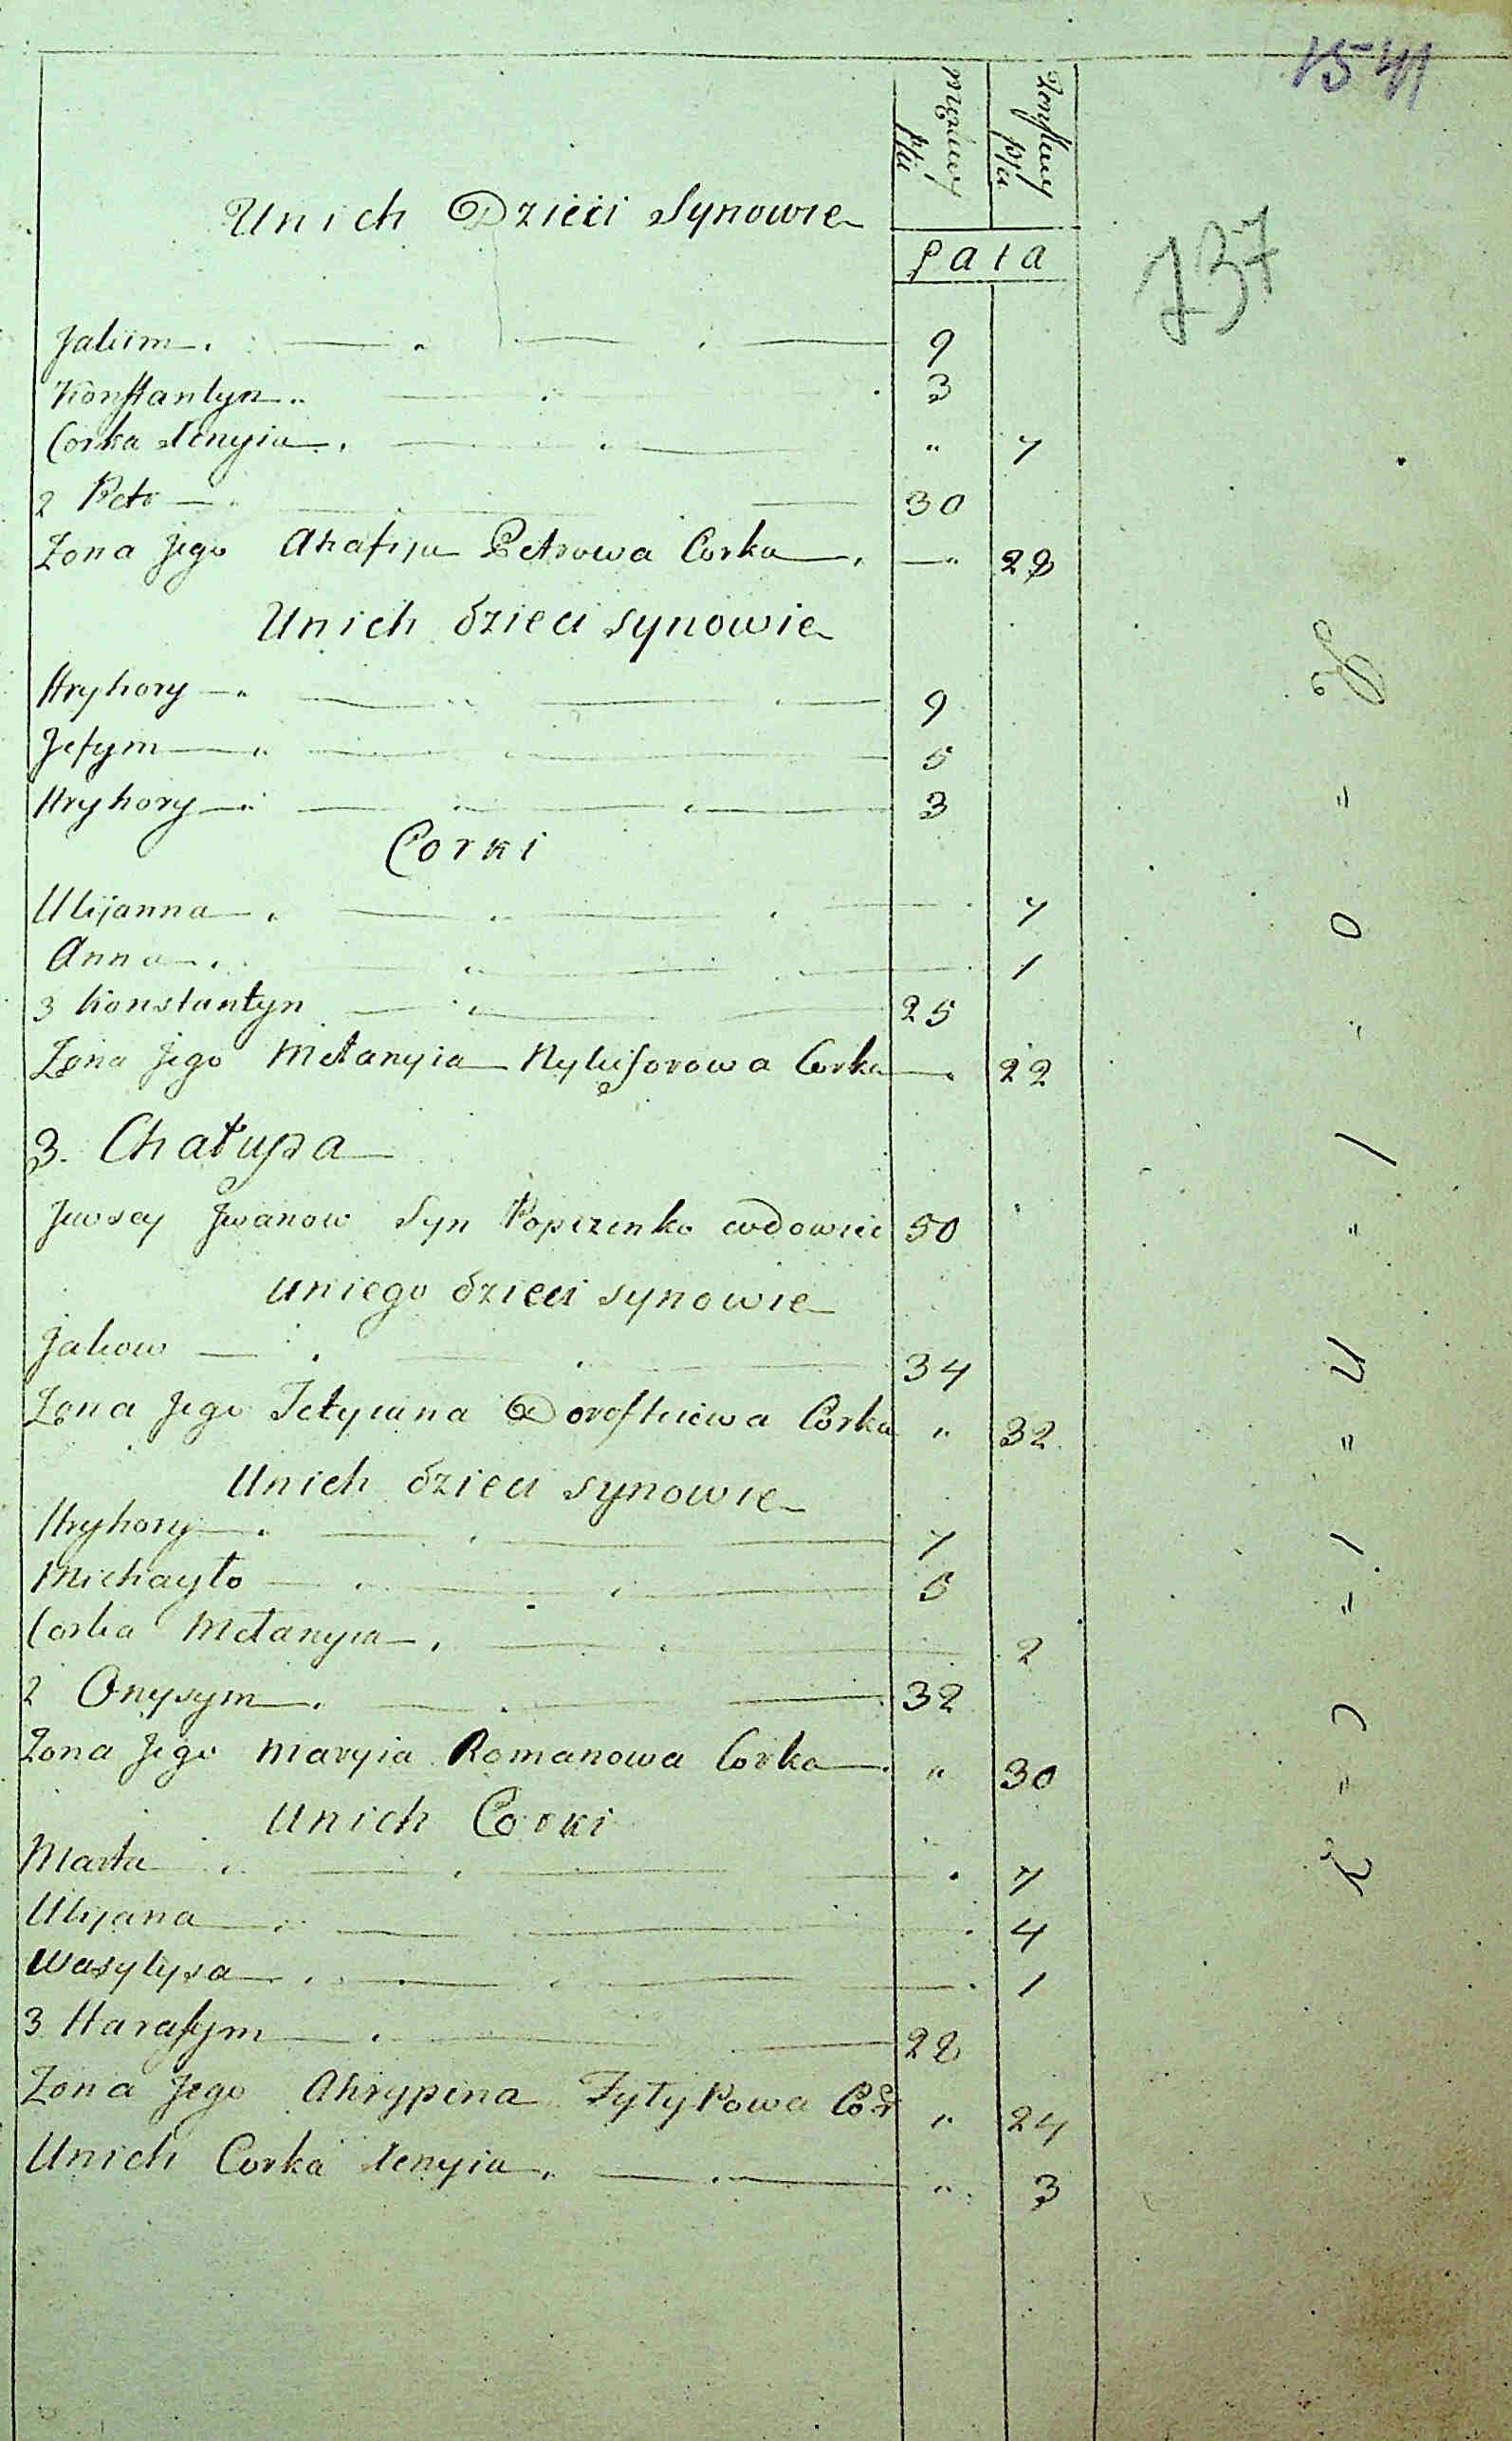 1541
Męzkiey Płci
Zenskiey Płci
Unich Dzieci Synowie
Lata
737
Jakim 9
Konstantyn 3
Corka Xenyia " 7
2 Petr 30
Zona Jego Ahafija Petrowa Corka " 28
Unich dzieci synowie
Hryhory 9
Jefym 5
Hryhory 3
Corki
Ulijanna 7
Anna 1
3 Konstantyn 25
Zona Jego Mełanyia Nykiforowa Corka 22
3. Chałupa
Jewsey Jwanow Syn Popczenko wdowiec 50
Uniego dzieci synowie
Jakow 34
Zona Jego Tetyiana Dorofkiewa Corka " 32
Unich dzieci synowie
Hryhory 7
Michayło 5
Corka Mełanyia 2
2 Onysym 32
Zona Jego Maryia Romanowa Corka " 30
Unich Corki
Marta 7
Ulijana 4
Wasylysa 1
3 Harasym 28
Zona Jego Ahrypina Fyłypowa Cor " 24
Unich Corka Xenyia " 3